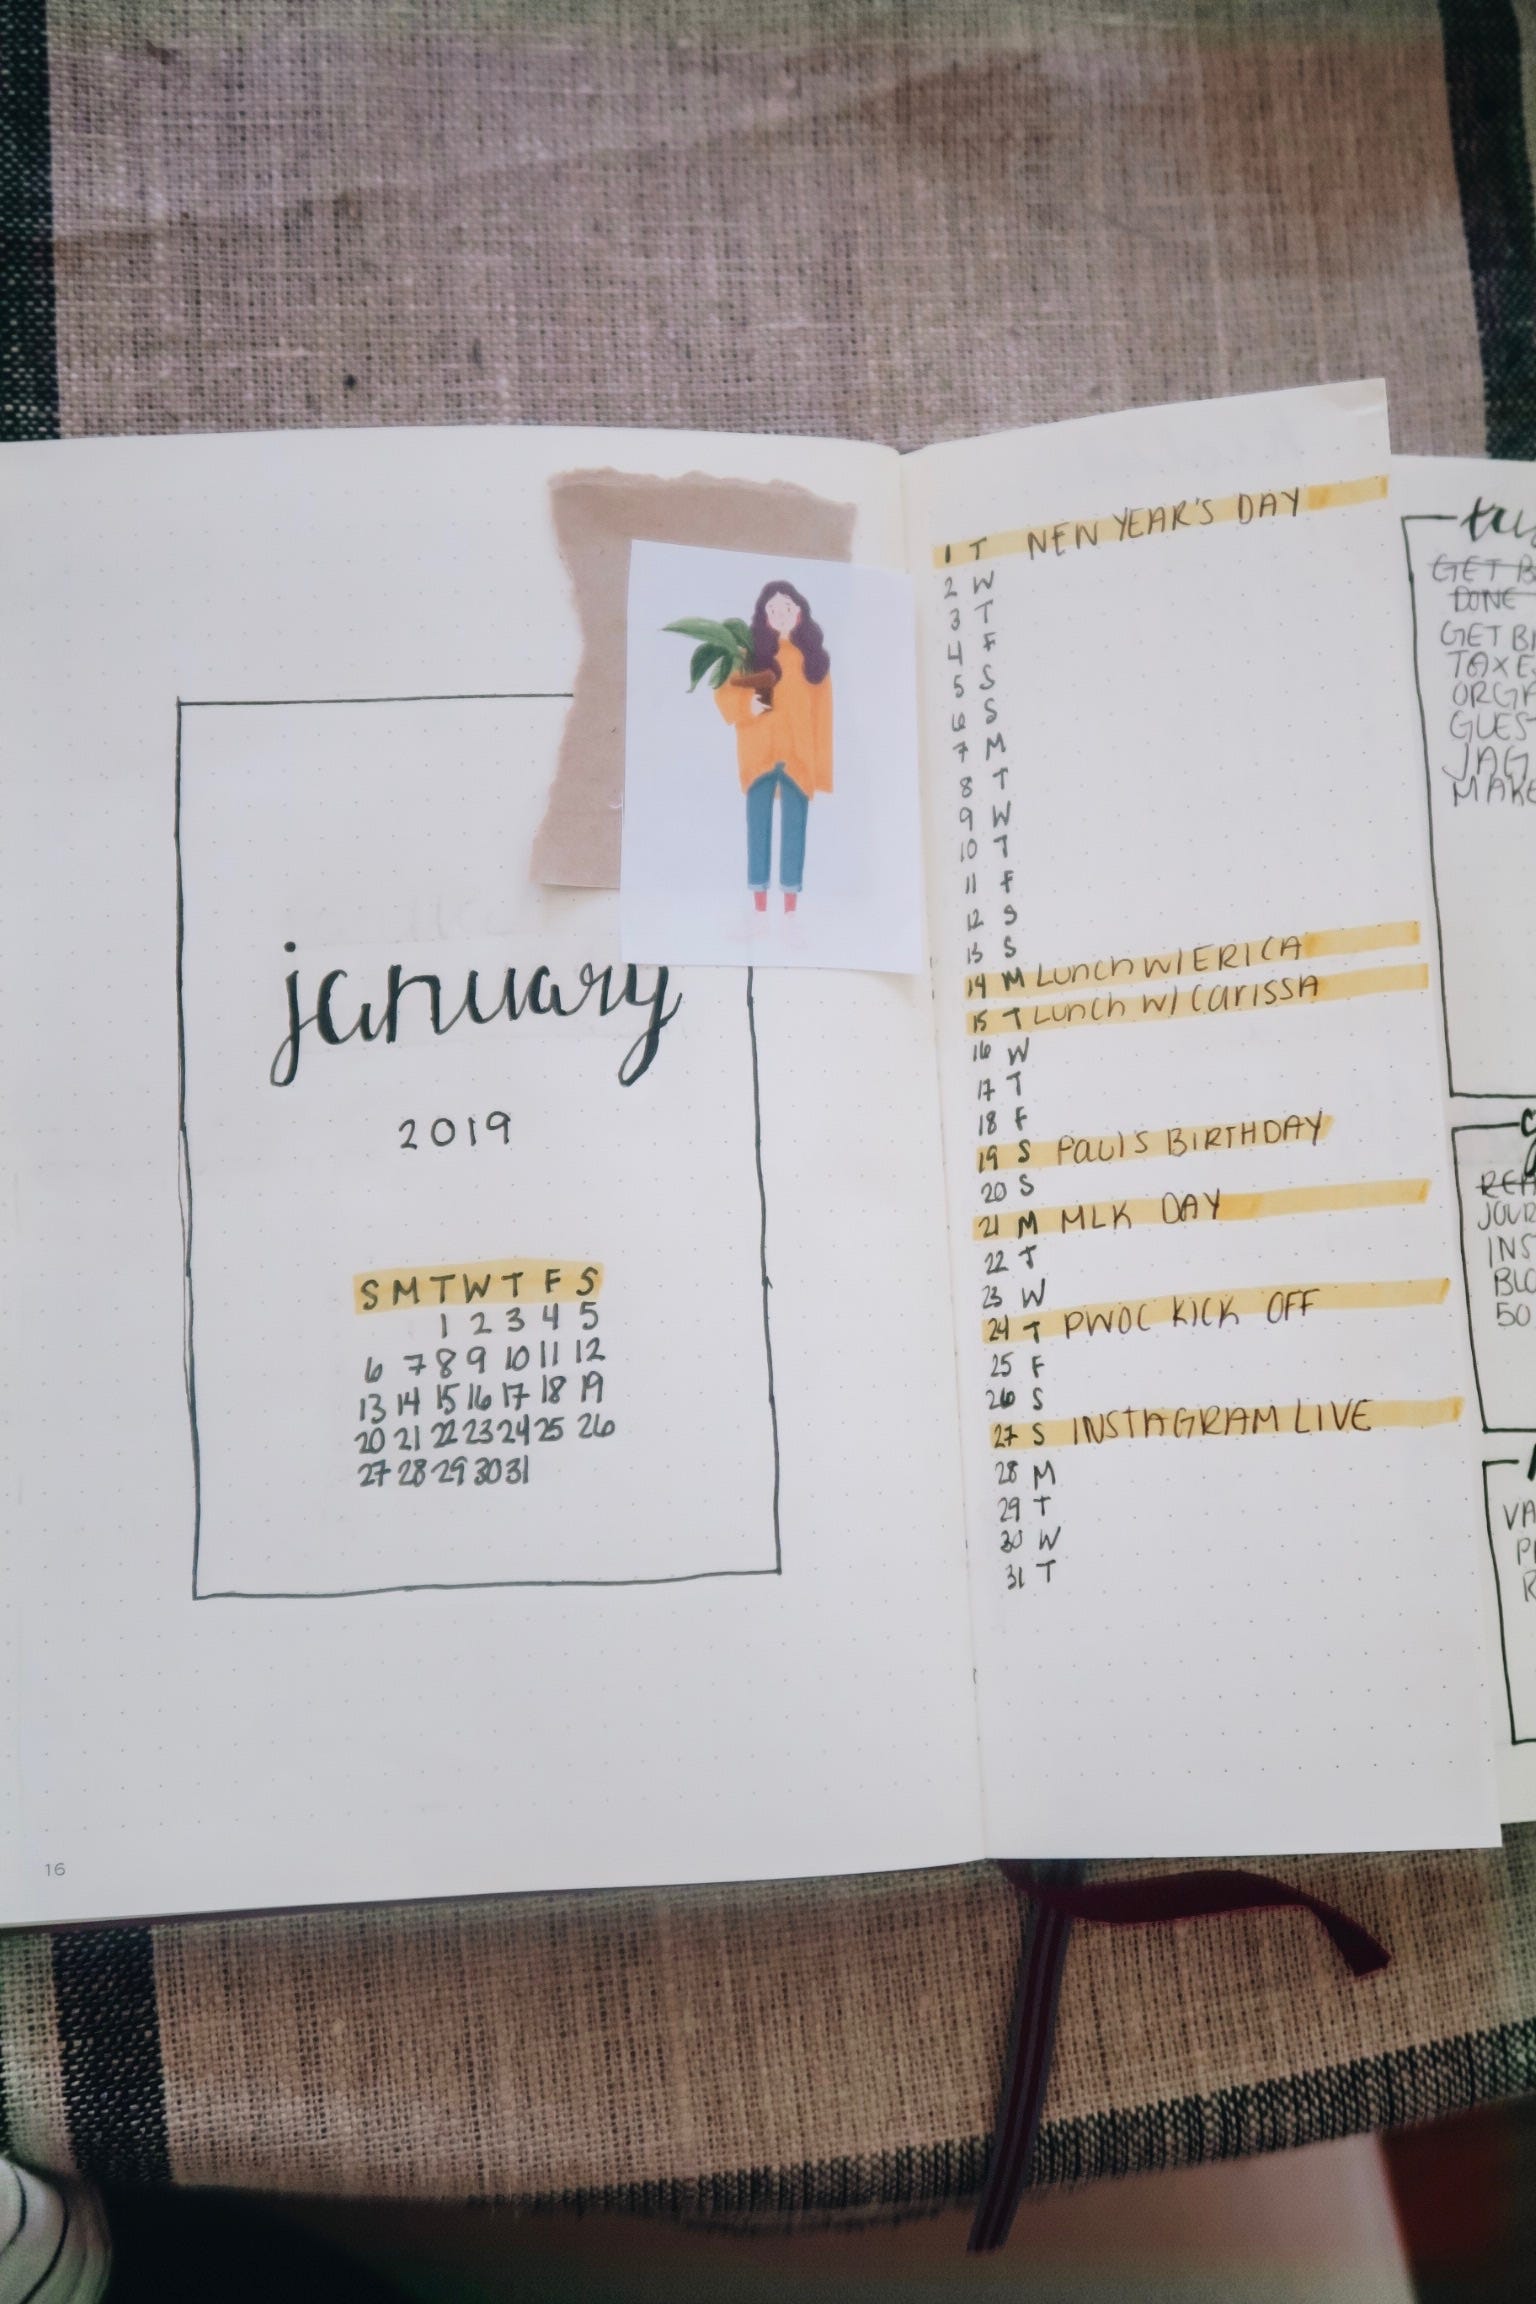 january
2019
S M T W T F S
1 2 3 4 5
6 7 8 9 10 11 12
13 14 15 16 17 18 19
20 21 22 23 24 25 26
27 28 29 30 31
16
1 T NEW YEAR'S DAY
2 W
3 T
4 F
5 S
6 S
7 M
8 T
9 W
10 T
11 F
12 S
13 S
14 M Lunch W/ ERICA
15 T Lunch W/ Carissa
16 W
17 T
18 F
19 S Paul's BIRTHDAY
20 S
21 M MLK DAY
22 T
23 W
24 T PWOC KICK OFF
25 F
26 S
27 S INSTAGRAM LIVE
28 M
29 T
30 W
31 T
GET
DONE
GET
50